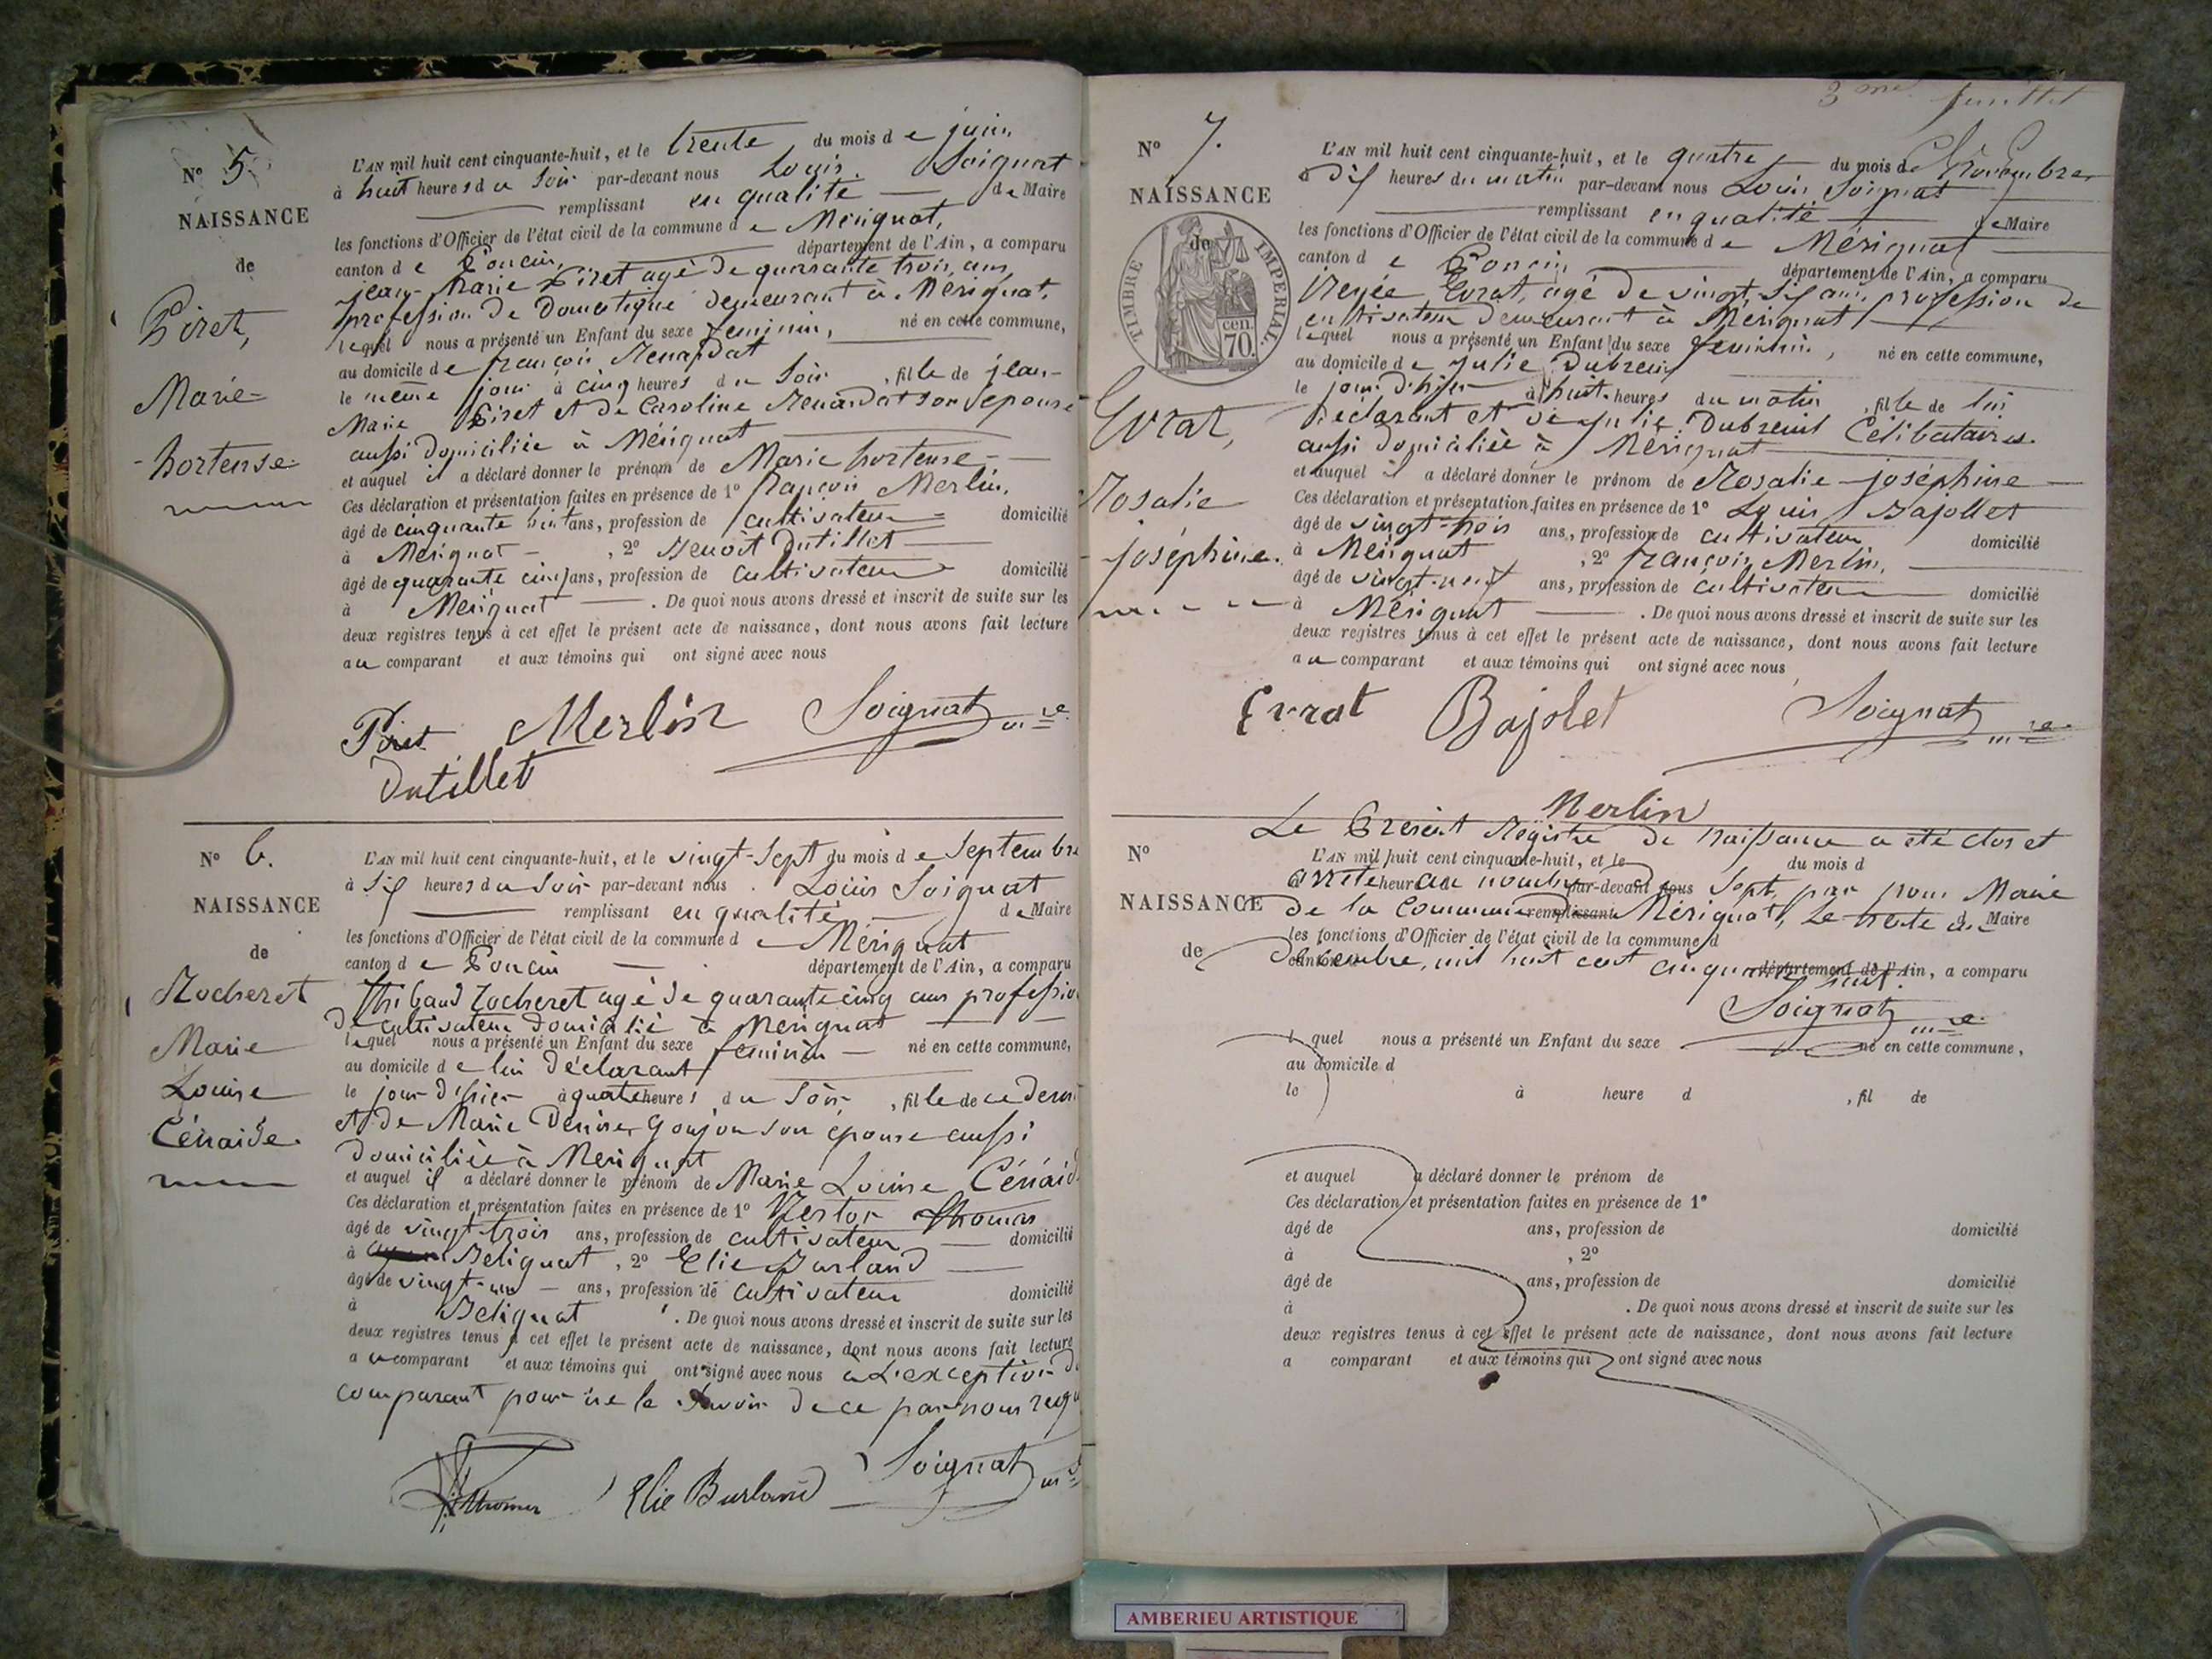 N° 5.
NAISSANCE
de
Piret,
Marie-
hortense
L'AN mil huit cent cinquante-huit, et le trente du mois de juin
à huit heures du soir par-devant nous Louis Soignat
remplissant en qualité de Maire
les fonctions d'Officier de l'état civil de la commune de Mérignat,
canton de Poncin, département de l'Ain, a comparu
jean-Marie Piret agé de quarante trois ans
profession de Domestique demeurant à Mérignat,
lequel nous a présenté un Enfant du sexe feminin, né en cette commune,
au domicile de françois Renardat
le même jour à cinq heures du soir, fille de jean-
Marie Piret et de Caroline Renardat son épouse
aussi domiciliée à Mérignat
et auquel il a déclaré donner le prénom de Marie hortense
Ces déclaration et présentation faites en présence de 1° françois Merlin,
âgé de cinquante huit ans, profession de cultivateur domicilié
à Mérignat, 2° Benoît Dutillet
âgé de quarante cinq ans, profession de cultivateur domicilié
à Mérignat. De quoi nous avons dressé et inscrit de suite sur les
deux registres tenus à cet effet le présent acte de naissance, dont nous avons fait lecture
au comparant et aux témoins qui ont signé avec nous
Piret Merlin Soignat mre
Dutillet
N° 6.
NAISSANCE
de
Rocheret
Marie
Louise
Cénaïde.
L'AN mil huit cent cinquante-huit, et le vingt-sept du mois de Septembre
à six heures du soir par-devant nous Louis Soignat
remplissant en qualité de Maire
les fonctions d'Officier de l'état civil de la commune de Mérignat
canton de Poncin département de l'Ain, a comparu
Thibaud Rocheret agé de quarante cinq ans profession
de cultivateur domicilié à Mérignat
lequel nous a présenté un Enfant du sexe feminin né en cette commune,
au domicile de lui déclarant
le jour d'hier à quatre heures du soir, fille de ce dern
et de Marie Denise Goujon son épouse aussi
domiciliée à Mérignat
et auquel il a déclaré donner le prénom de Marie Louise Cénaïd
Ces déclaration et présentation faites en présence de 1° Nestor Thomas
âgé de vingt trois ans, profession de cultivateur domicilié
à Belignat, 2° Elie Burland
âgé de vingt-un ans, profession de cultivateur domicilié
à Belignat. De quoi nous avons dressé et inscrit de suite sur les
deux registres tenus à cet effet le présent acte de naissance, dont nous avons fait lecture
au comparant et aux témoins qui ont signé avec nous à L'exception du
comparant pour ne le savoir de ce par nous requ
Thomas Elie Burland Soignat mre
3me feuillet
N° 7.
NAISSANCE
de
TIMBRE IMPERIAL
70 cen.
Evrat,
Rosalie
joséphine.
L'AN mil huit cent cinquante-huit, et le quatre du mois de Novembre
à dix heures du matin par-devant nous Louis Soignat
remplissant en qualité de Maire
les fonctions d'Officier de l'état civil de la commune de Mérignat
canton de Poncin département de l'Ain, a comparu
Evrat, agé de vingt six ans, profession de
cultivateur demeurant à Mérignat
lequel nous a présenté un Enfant du sexe feminin, né en cette commune,
au domicile de Julie Dubreuil
le jour d'hier à huit heures du matin, fille de lui
déclarant et de Julie Dubreuil Célibataires
aussi domiciliée à Mérignat
et auquel il a déclaré donner le prénom de Rosalie-joséphine
Ces déclaration et présentation faites en présence de 1° Louis Bajollet
âgé de vingt-trois ans, profession de cultivateur domicilié
à Mérignat, 2° françois Merlin,
âgé de vingt-neuf ans, profession de cultivateur domicilié
à Mérignat. De quoi nous avons dressé et inscrit de suite sur les
deux registres tenus à cet effet le présent acte de naissance, dont nous avons fait lecture
au comparant et aux témoins qui ont signé avec nous
Evrat Bajolet Soignat mre
Merlin
Le Present Registre de naissance a été clos et
N°
L'AN mil huit cent cinquante-huit, et le du mois d
arrété au nombre de sept, par nous Maire
à heure d par-devant nous
NAISSANCE
de la Commune de Mérignat, Le trente de
remplissant d Maire
les fonctions d'Officier de l'état civil de la commune d
de
decembre, mil huit cent cinquante huit.
canton d département de l'Ain, a comparu
Soignat mre
l quel nous a présenté un Enfant du sexe né en cette commune,
au domicile d
le à heure d , fil de
et auquel a déclaré donner le prénom de
Ces déclaration et présentation faites en présence de 1°
âgé de ans, profession de domicilié
à , 2°
âgé de ans, profession de domicilié
à . De quoi nous avons dressé et inscrit de suite sur les
deux registres tenus à cet effet le présent acte de naissance, dont nous avons fait lecture
a comparant et aux témoins qui ont signé avec nous
AMBERIEU ARTISTIQUE